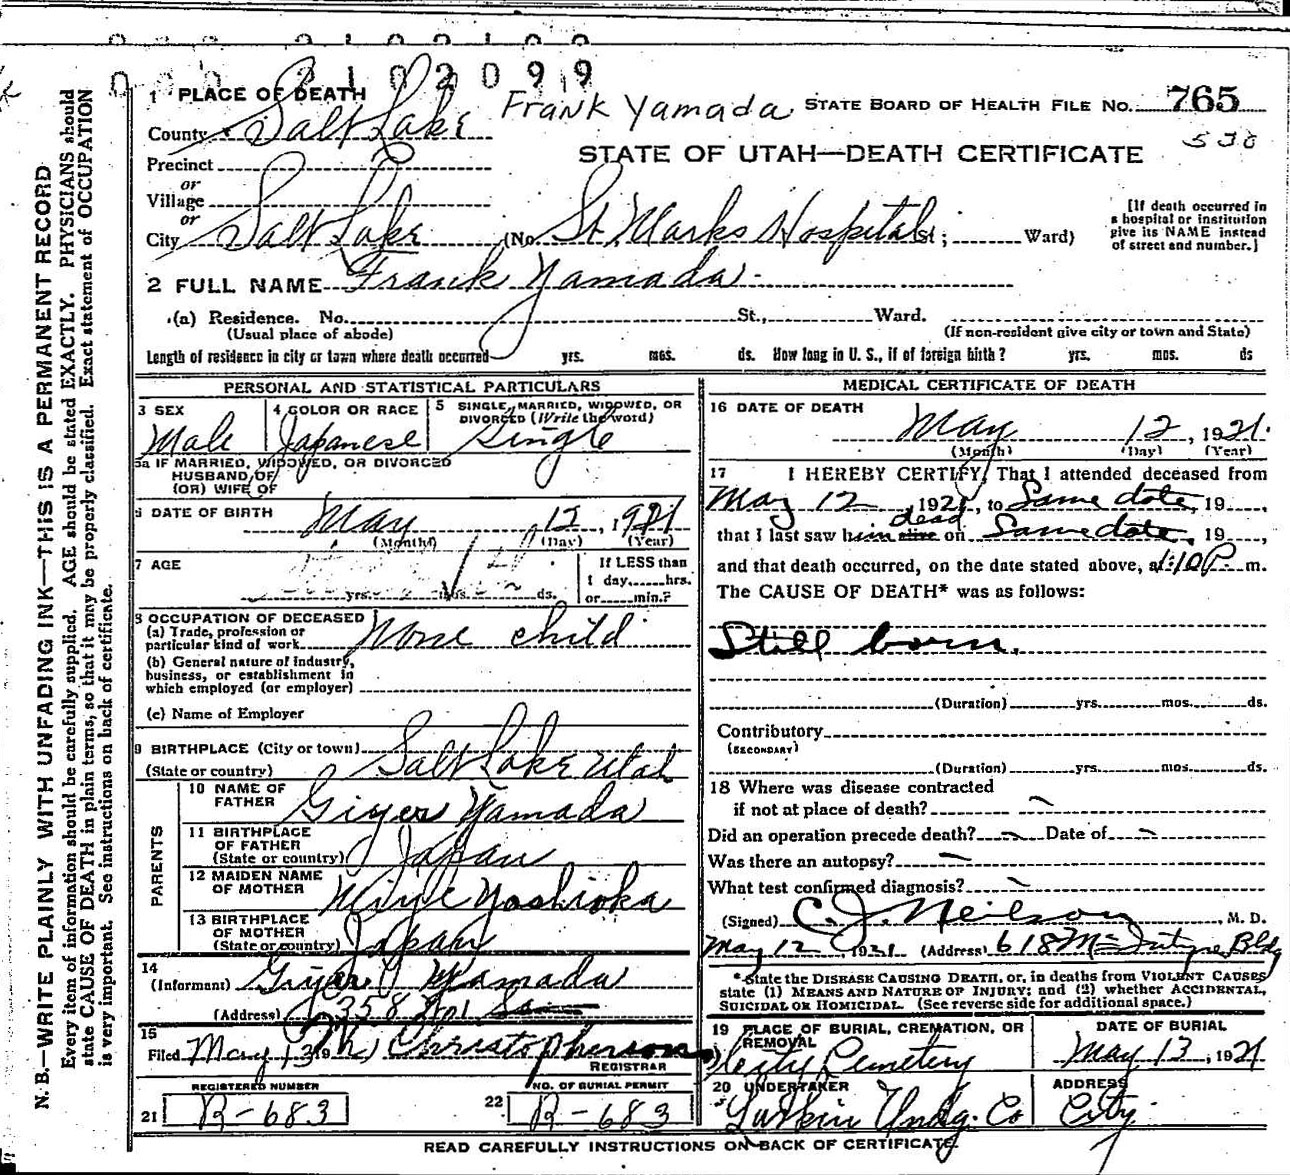 0 0 0 2 1 0 2 0 9 9
1 PLACE OF DEATH
Frank Yamada
STATE BOARD OF HEALTH FILE NO. 765
538
County Salt Lake
STATE OF UTAH—DEATH CERTIFICATE
Precinct
or
Village
or
City Salt Lake (No. St. Marks Hospital St; Ward)
[If death occurred in
a hospital or institution
give its NAME instead
of street and number.]
2 FULL NAME Frank Yamada
(a) Residence. No. St., Ward.
(Usual place of abode) (If non-resident give city or town and State)
Length of residence in city or town where death occurred yrs. mos. ds. How long in U. S., if of foreign birth? yrs. mos. ds
PERSONAL AND STATISTICAL PARTICULARS
3 SEX
Male
4 COLOR OR RACE
Japanese
5 SINGLE, MARRIED, WIDOWED, OR
DIVORCED (Write the word)
Single
5a IF MARRIED, WIDOWED, OR DIVORCED
HUSBAND OF
(OR) WIFE OF
6 DATE OF BIRTH May 12, 1921
(Month) (Day) (Year)
7 AGE
yrs. mos. ds.
If LESS than
1 day, hrs.
or min.?
8 OCCUPATION OF DECEASED
(a) Trade, profession or
particular kind of work None child
(b) General nature of industry,
business, or establishment in
which employed (or employer)
(c) Name of Employer
9 BIRTHPLACE (City or town)
(State or country) Salt Lake Utah
PARENTS
10 NAME OF
FATHER Yamada
11 BIRTHPLACE
OF FATHER
(State or country) Japan
12 MAIDEN NAME
OF MOTHER Yoshioka
13 BIRTHPLACE
OF MOTHER
(State or country) Japan
14
(Informant) Yamada
(Address) 358
15
Filed May 13 19 Christopherson
REGISTRAR
REGISTERED NUMBER
21 R-683
NO. OF BURIAL PERMIT
22 R-683
MEDICAL CERTIFICATE OF DEATH
16 DATE OF DEATH
May 12, 1921.
(Month) (Day) (Year)
17 I HEREBY CERTIFY, That I attended deceased from
May 12, 1921, to Same date, 19
dead
that I last saw him alive on Same date, 19
and that death occurred, on the date stated above, at 1:10 P. m.
The CAUSE OF DEATH* was as follows:
Still born.
(Duration) yrs. mos. ds.
Contributory
(SECONDARY)
(Duration) yrs. mos. ds.
18 Where was disease contracted
if not at place of death?
Did an operation precede death? Date of
Was there an autopsy?
What test confirmed diagnosis?
(Signed) C. J. Neilson, M. D.
May 12, 1921 (Address) 618 McIntyre Bldg
*State the DISEASE CAUSING DEATH, or, in deaths from VIOLENT CAUSES
state (1) MEANS AND NATURE OF INJURY; and (2) whether ACCIDENTAL,
SUICIDAL OR HOMICIDAL. (See reverse side for additional space.)
19 PLACE OF BURIAL, CREMATION, OR
REMOVAL
City Cemetery
DATE OF BURIAL
May 13, 1921
20 UNDERTAKER
Larkin Undg. Co
ADDRESS
City.
READ CAREFULLY INSTRUCTIONS ON BACK OF CERTIFICATE.
N. B.—WRITE PLAINLY WITH UNFADING INK—THIS IS A PERMANENT RECORD
Every item of information should be carefully supplied. AGE should be stated EXACTLY. PHYSICIANS should
state CAUSE OF DEATH in plain terms, so that it may be properly classified. Exact statement of OCCUPATION
is very important. See instructions on back of certificate.